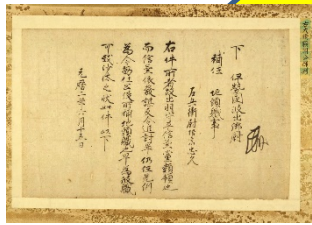 下 伊勢国波出御厨
補任 地頭職事
左兵衛尉惟宗忠久
右件所者故出羽守平信兼党類領也
而信兼依發謀反令追討畢仍任先例
為令勤仕公役所補地頭職也早為彼職
可致沙汰之状如件以下
元暦二年六月十五日